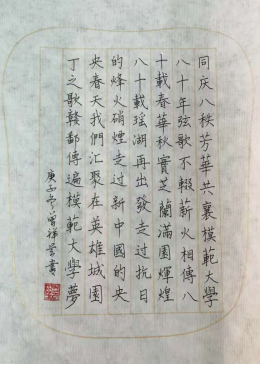 同庆八秩芳華共襄模範大學
八十年弦歌不輟薪火相傳八
十載春華秋實芝蘭滿園輝煌
八十載瑶湖再出發走过抗日
的烽火硝煙走过新中國的央
央春天我們汇聚在英雄城園
丁之歌赣鄱傳遍模範大學夢
庚子冬曾祥書